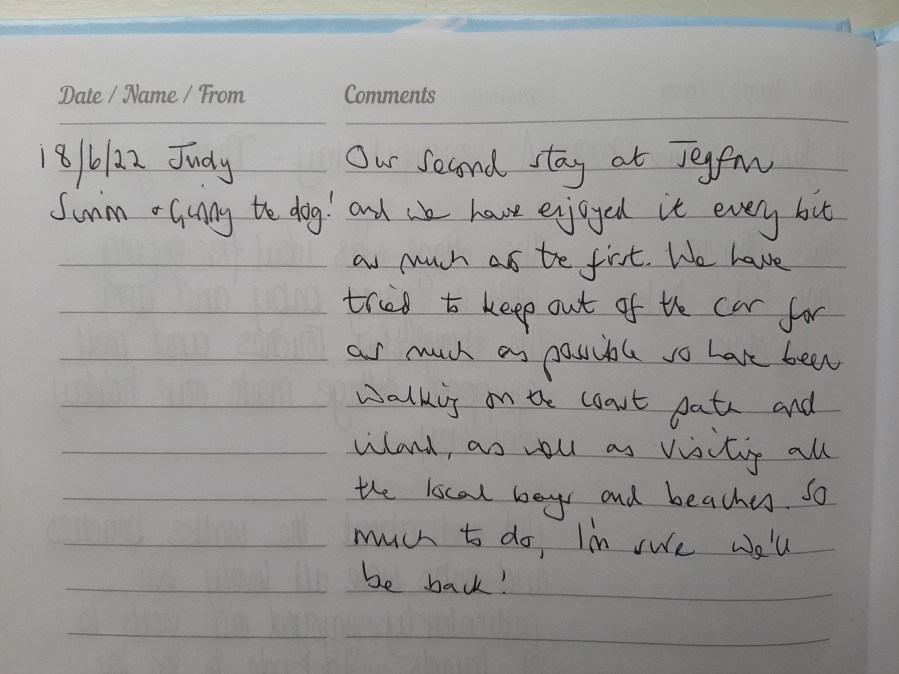 Date / Name / From Comments
18/6/22 Judy
Simon + Ginny the dog!
Our second stay at
and we have enjoyed it every bit
as much as the first. We have
tried to keep out of the car for
as much as possible so have been
walking on the coast path and
inland, as well as visiting all
the local bays and beaches. So
much to do, I'm sure we'll
be back!